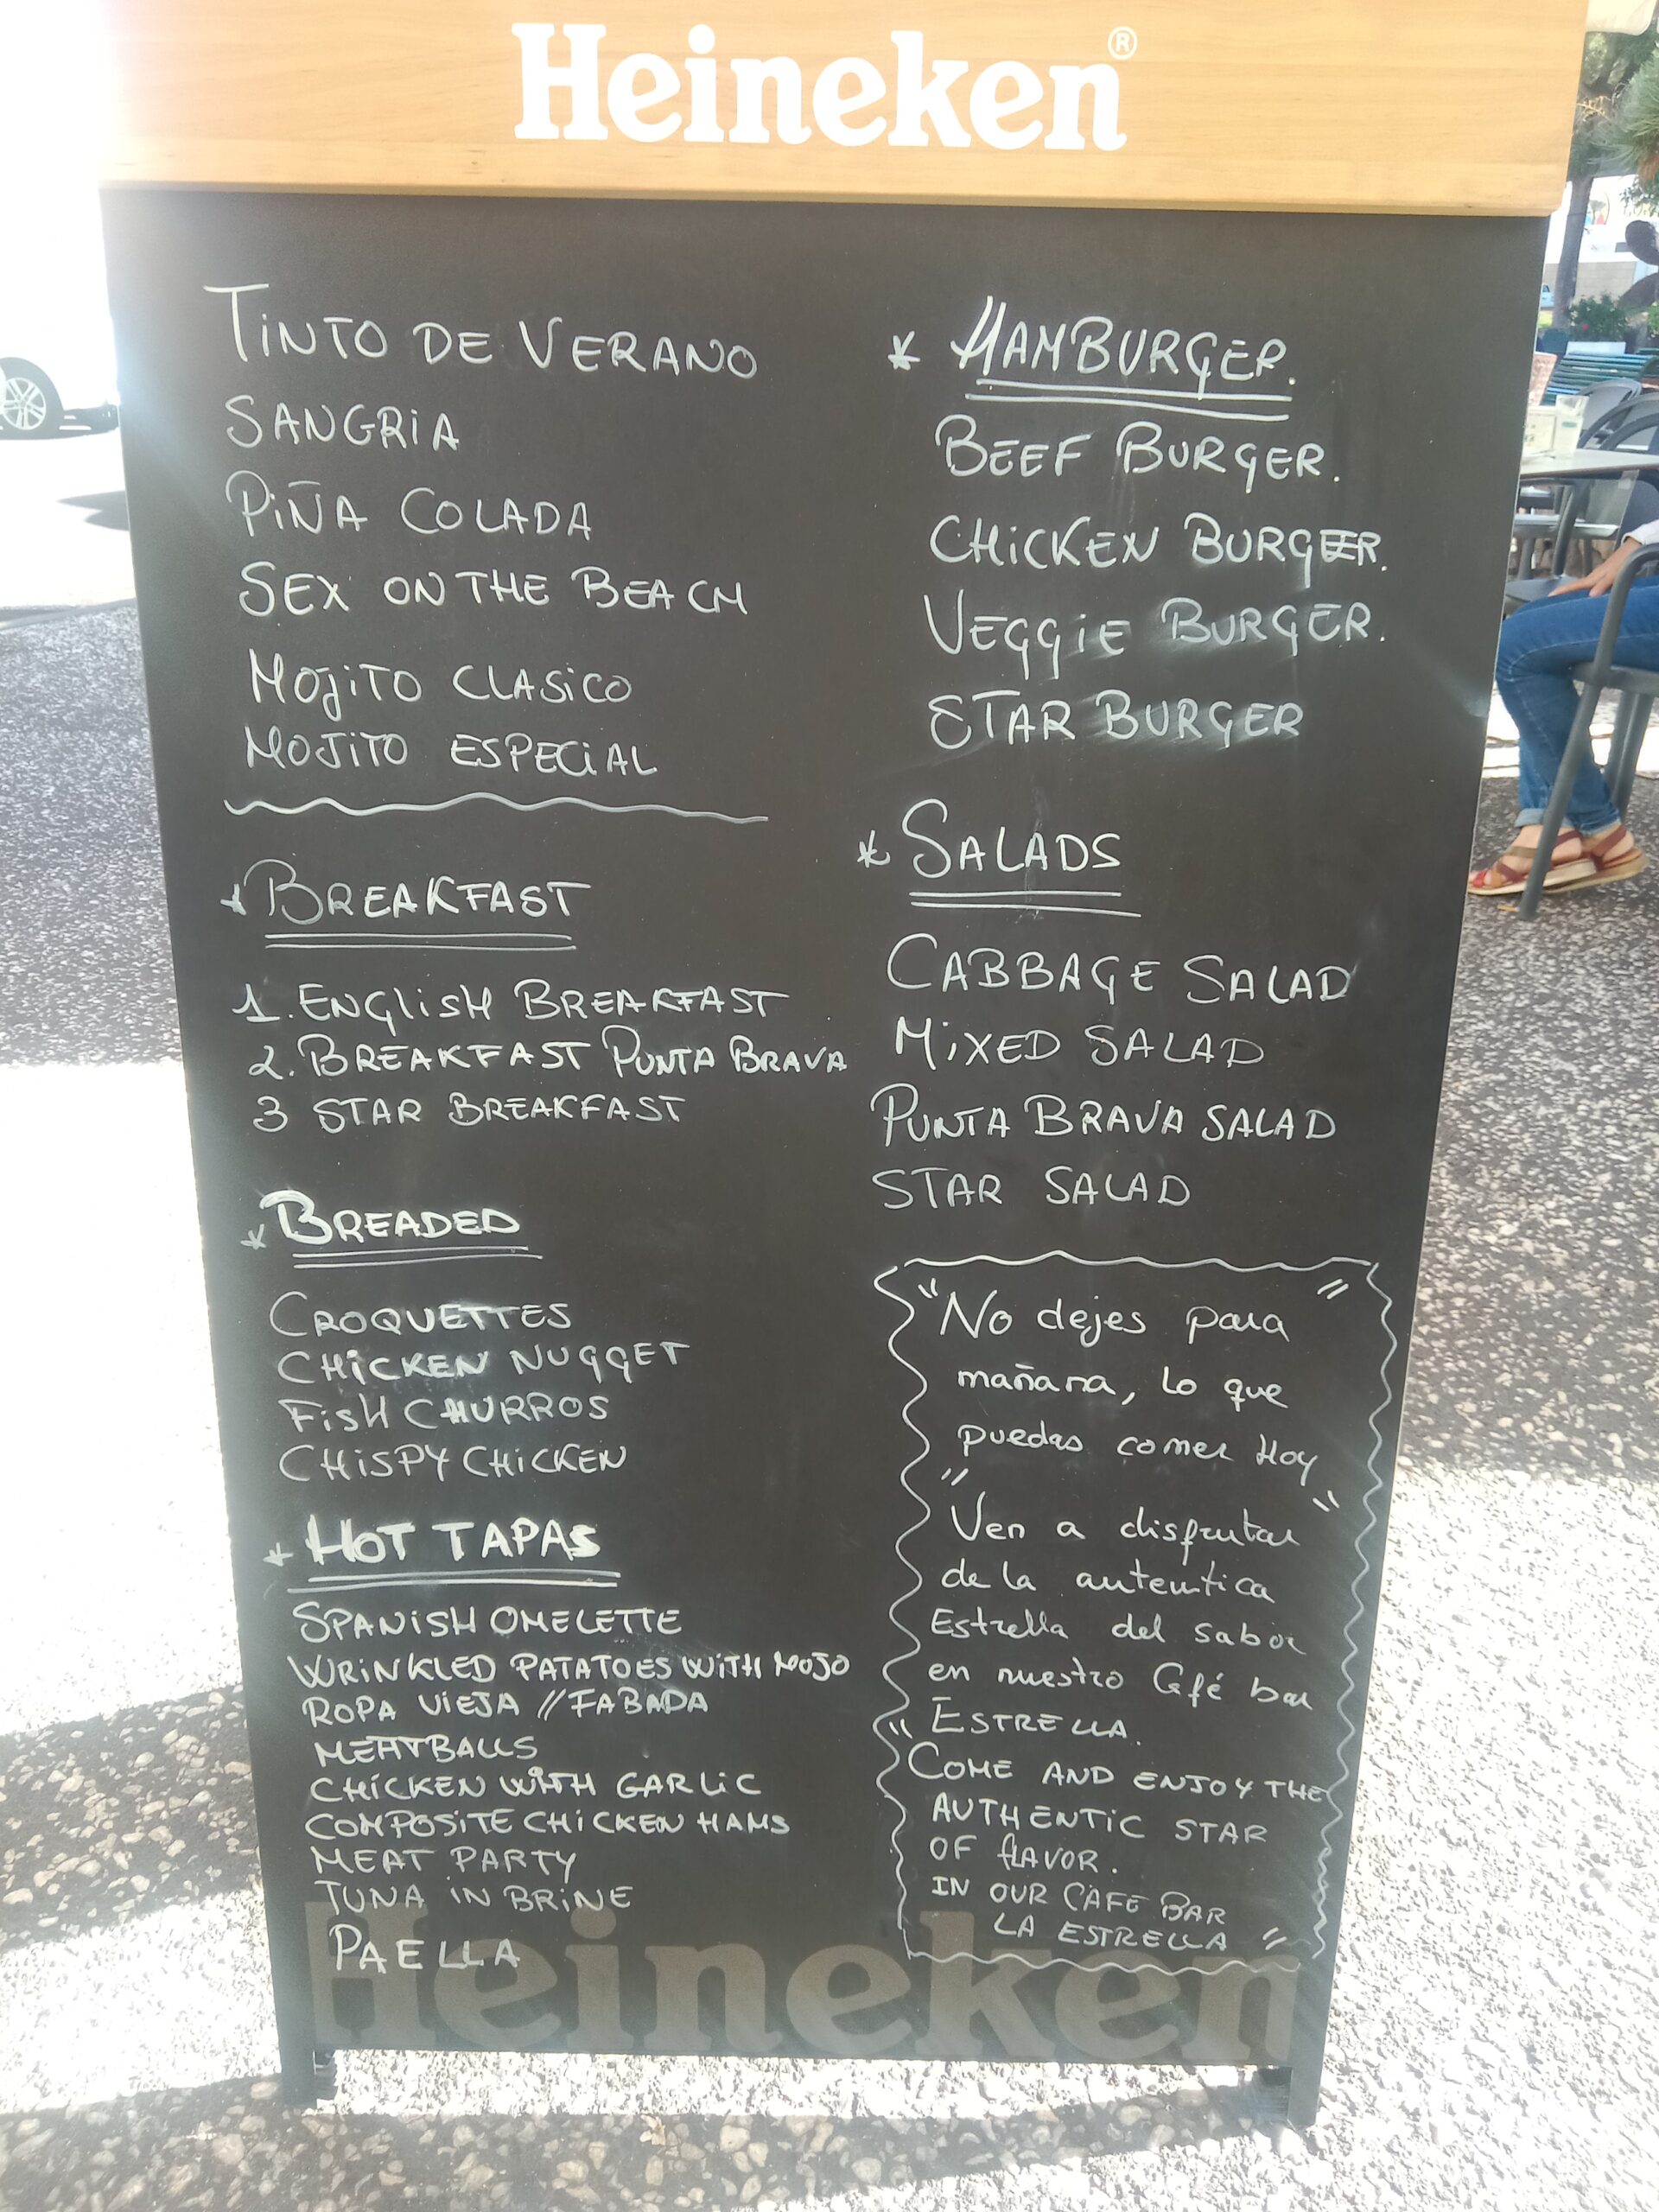 Heineken®
TiNTO DE VERANO
SANGRiA
PiÑA COLADA
SEX ON THE BEACH
MOjiTO CLASiCO
MOJiTO ESPECiAL
* BREAKFAST
1. ENGLiSH BREAKFAST
2. BREAKFAST PUNTA BRAVA
3 STAR BREAKFAST
* BREADED
CROQUETTES
CHiCKEN NUGGET
FiSH CHURROS
CHiSPY CHiCKEN
* HOT TAPAS
SPANiSH OMELETTE
WRiNKLED PATATOES WiTH MOJO
ROPA ViEJA // FABADA
MEATBALLS
CHiCKEN WiTH GARLiC
COMPOSiTE CHiCKEN HAMS
MEAT PARTY
TUNA iN BRiNE
PAELLA
* HAMBURGER.
BEEF BURGER.
CHiCKEN BURGER.
VEGGiE BURGER.
STAR BURGER
* SALADS
CABBAGE SALAD
MiXED SALAD
PUNTA BRAVA SALAD
STAR SALAD
"No dejes para "
mañana, lo que
puedas comer Hoy
" Ven a disfrutar "
de la autentica
Estrella del sabor
en nuestro Café bar
ESTRELLA.
" COME AND ENJOY THE
AUTHENTiC STAR
OF flAVOR.
IN OUR CAFE BAR
LA ESTRELLA "
Heineken